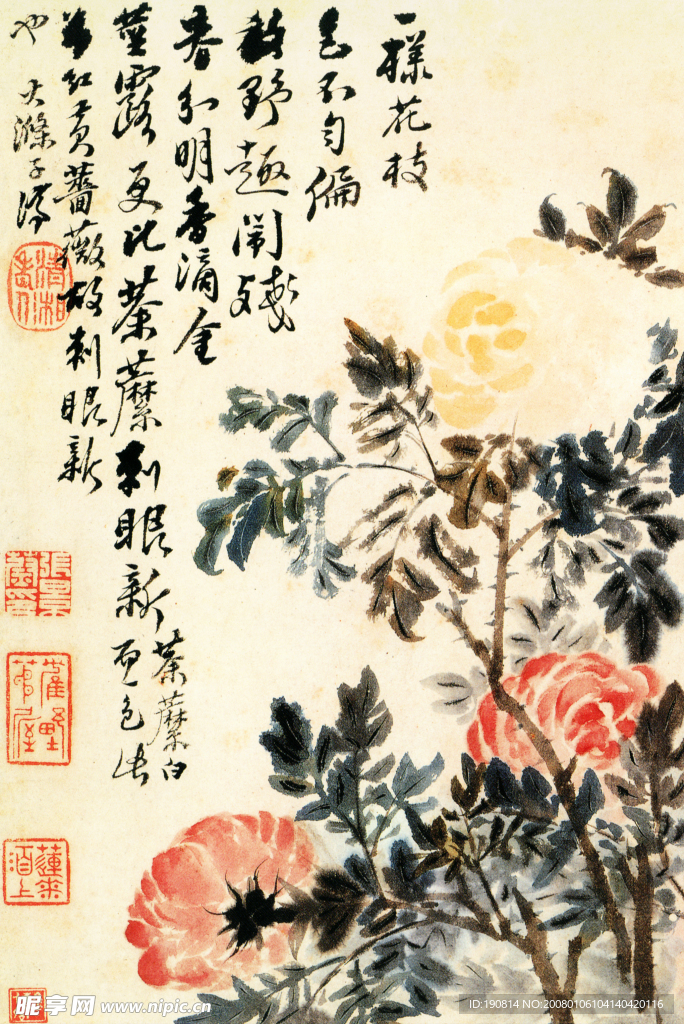 一樣花枝
色不勻偏
教野趣鬧殘
春分明香滴金
莖露更比荼蘼刺眼新
荼蘼白
而色佳
若紅黃薔薇故刺眼新
也 大滌子濟
昵享网 www.nipic.cn
ID:190814 NO:20080106104140420116